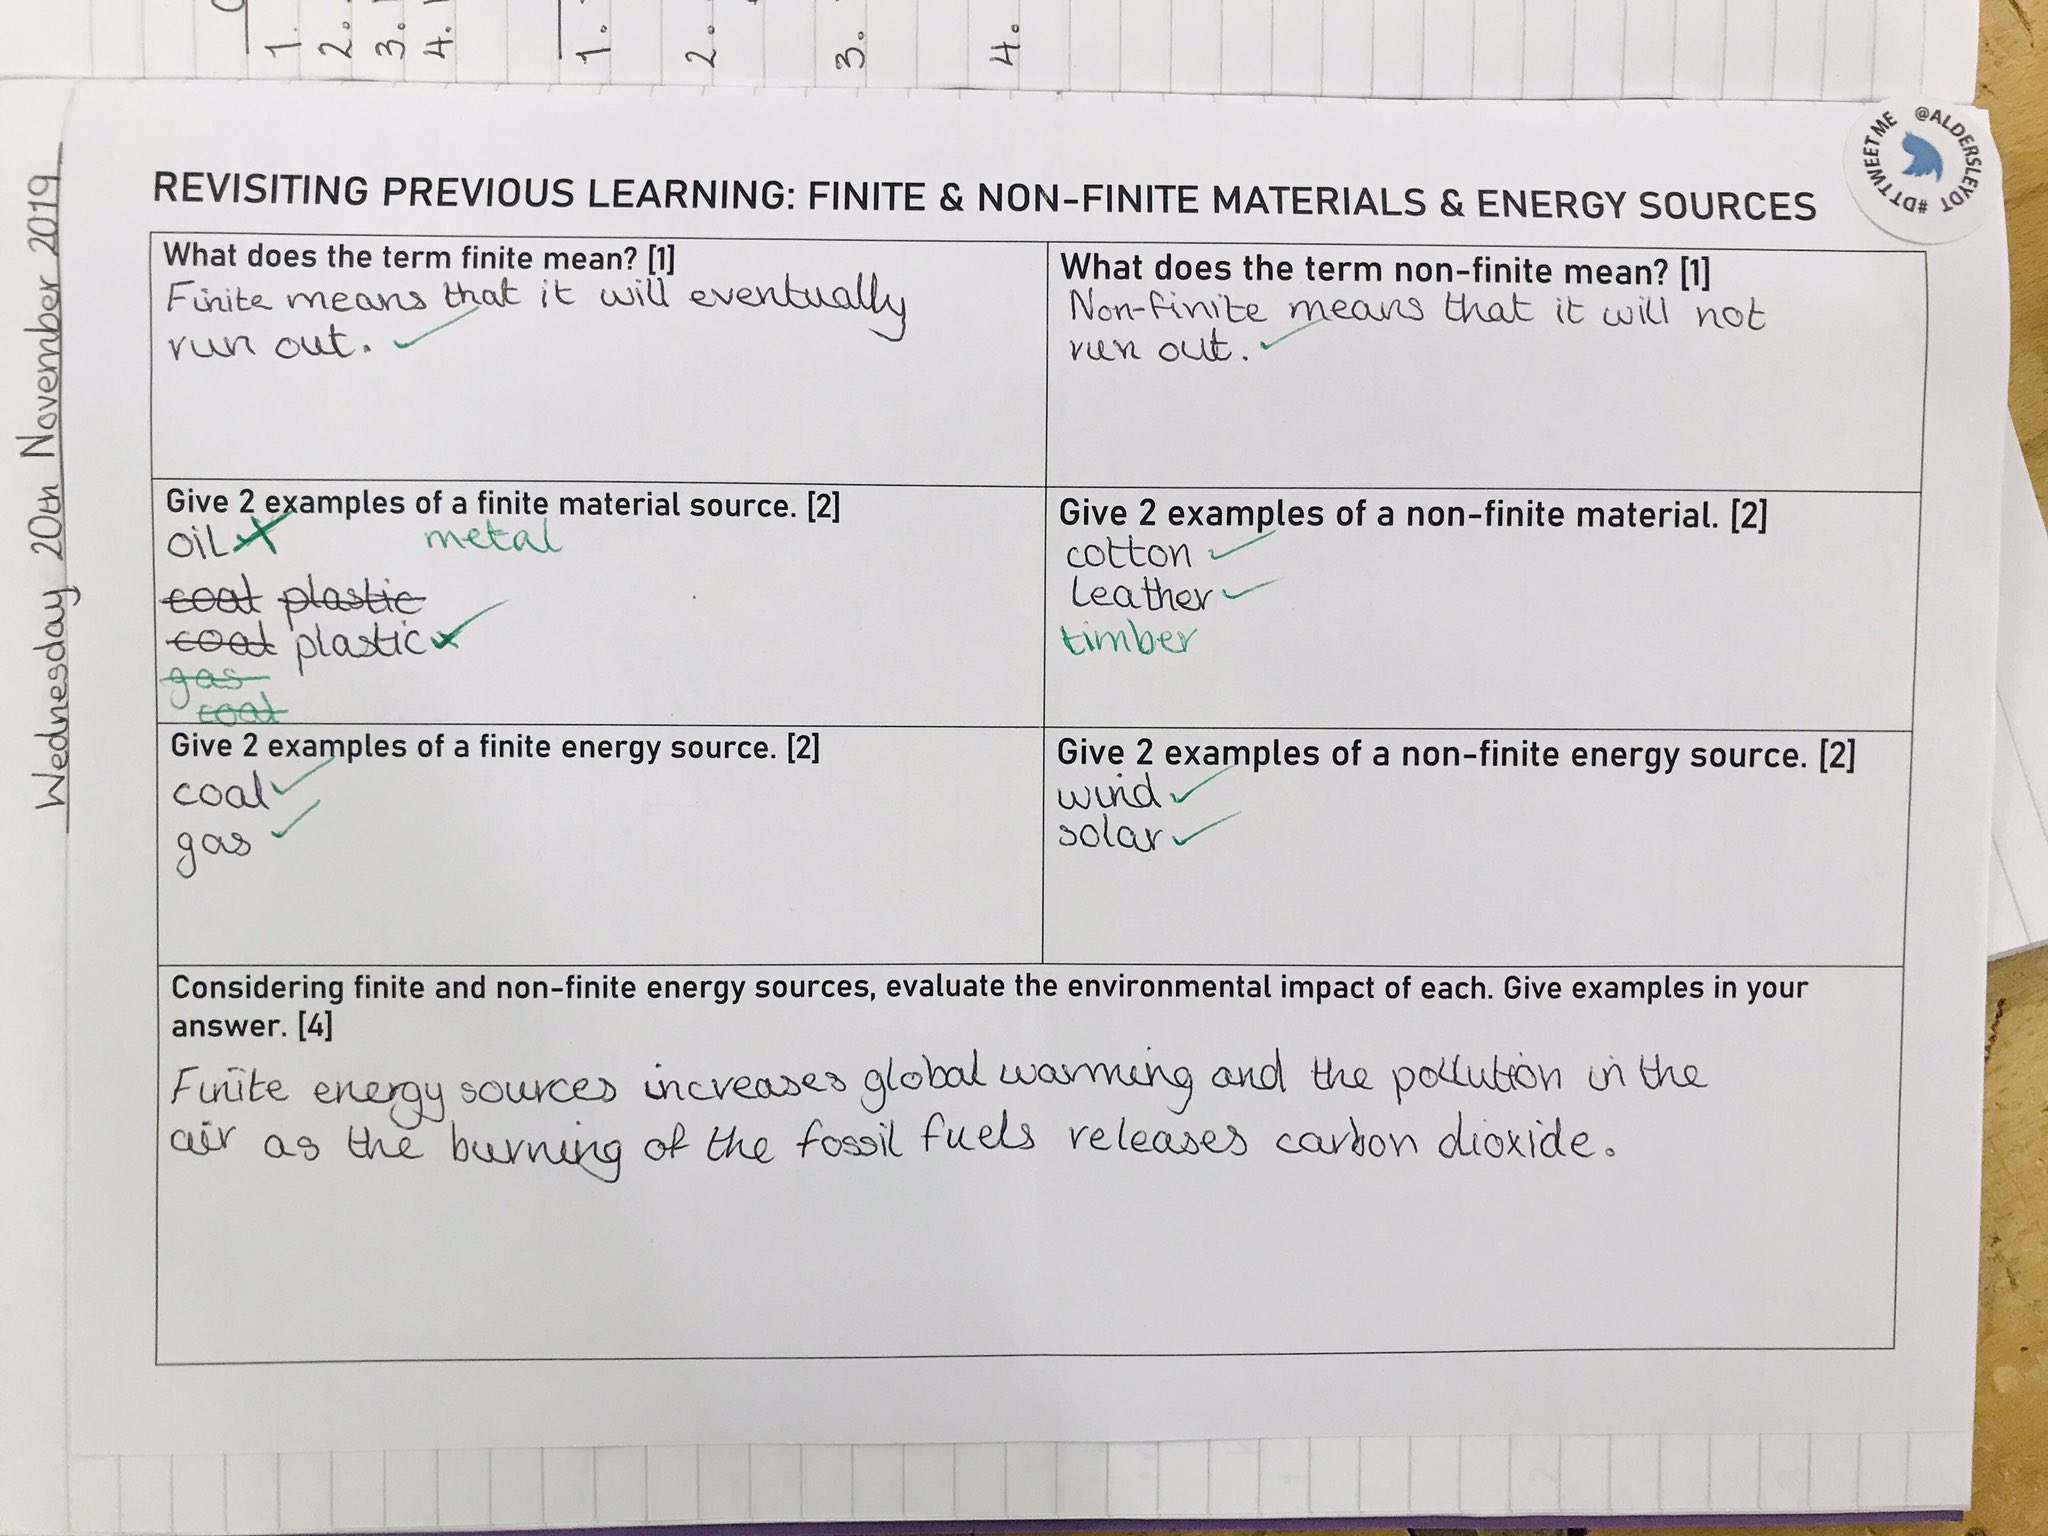 1.
2.
3.
4.
1.
2.
3.
4.
Wednesday 20th November 2019
@ALDERSLEYDT #DTTWEETME
REVISITING PREVIOUS LEARNING: FINITE & NON-FINITE MATERIALS & ENERGY SOURCES
What does the term finite mean? [1]
Finite means that it will eventually
run out.
What does the term non-finite mean? [1]
Non-finite means that it will not
run out.
Give 2 examples of a finite material source. [2]
oil metal
coal plastic
coal plastic
gas
coal
Give 2 examples of a non-finite material. [2]
cotton
leather
timber
Give 2 examples of a finite energy source. [2]
coal
gas
Give 2 examples of a non-finite energy source. [2]
wind
solar
Considering finite and non-finite energy sources, evaluate the environmental impact of each. Give examples in your
answer. [4]
Finite energy sources increases global warming and the pollution in the
air as the burning of the fossil fuels releases carbon dioxide.